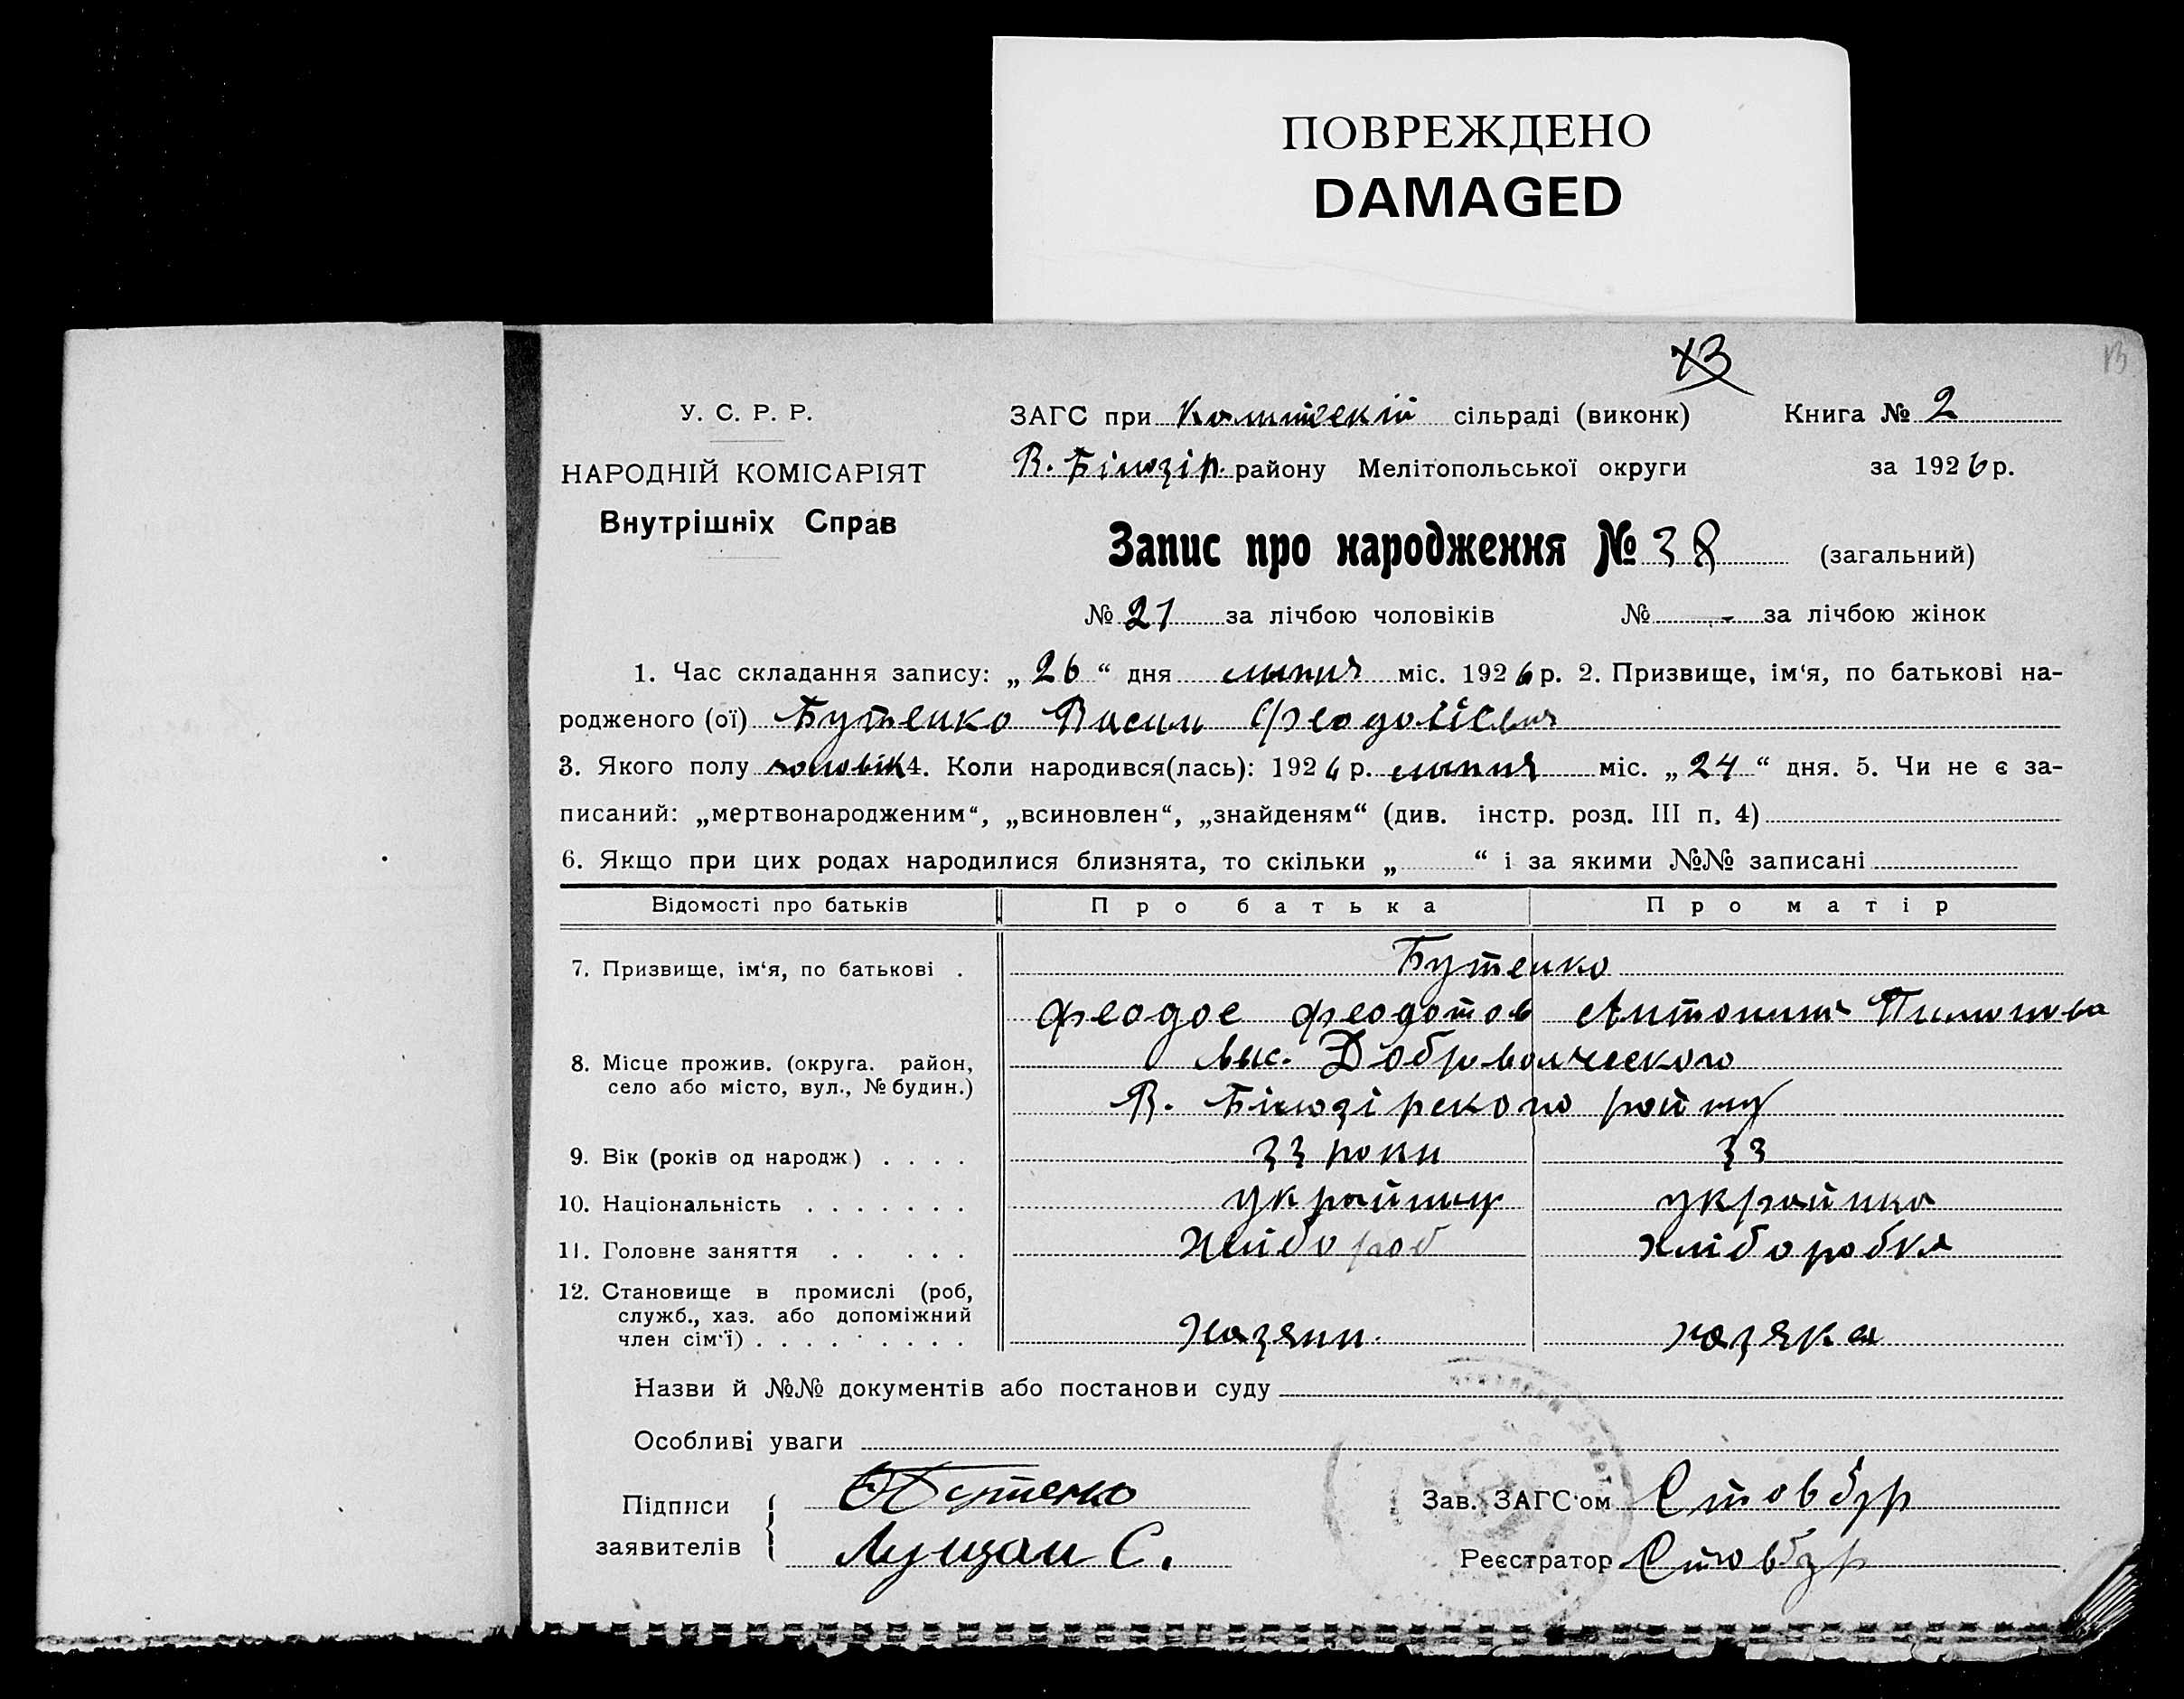 ПОВРЕЖДЕНО
DAMAGED
13
13
У. С. Р. Р.
НАРОДНІЙ КОМІСАРІЯТ
Внутрішніх Справ
ЗАГС при сільраді (виконк) Книга № 2
В. Білозір. району Мелітопольської округи за 1926 р.
Запис про народження № 38 (загальний)
№ 21 за лічбою чоловіків № - за лічбою жінок
1. Час складання запису: „26“ дня липня міс. 1926 р. 2. Призвище, ім‘я, по батькові на-
родженого (ої) Бутенко Васил Феодосієвич
3. Якого полу чоловік 4. Коли народився(лась): 1926 р. липня міс. „24“ дня. 5. Чи не є за-
писаний: „мертвонародженим“, „всиновлен“, „знайденям“ (див. інстр. розд. III п. 4)
6. Якщо при цих родах народилися близнята, то скільки „ “ і за якими №№ записані
Відомості про батьків Про батька Про матір
7. Призвище, ім‘я, по батькові . Бутенко
Феодос Феодотов Антонина
8. Місце прожив. (округа. район,
село або місто, вул., № будин.)
вис. Добровольческого
В. Білозірского району
9. Вік (років од народж) . . . . 33 роки 33
10. Національність . . . . . . . украйинц украйинка
11. Головне заняття . . . . . Хлібороб хліборобка
12. Становище в промислі (роб,
служб., хаз. або допоміжний
член сім‘ї) . . . . . . . . . Хазяин. хазяка
Назви й №№ документів або постанови суду
Особливі уваги
Підписи
заявителів
Ф Бутенко
Лущай С.
Зав. ЗАГС‘ом Стовбур
Реєстратор Стовбур